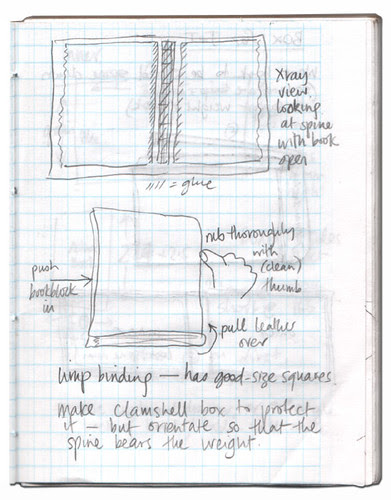 Xray
view,
looking
at spine
with book
open
//// = glue
rub thoroughly
with
(clean)
thumb
push
bookblock
in
pull leather
over
limp binding — has good-size squares.
make clamshell box to protect
it — but orientate so that the
spine bears the weight.